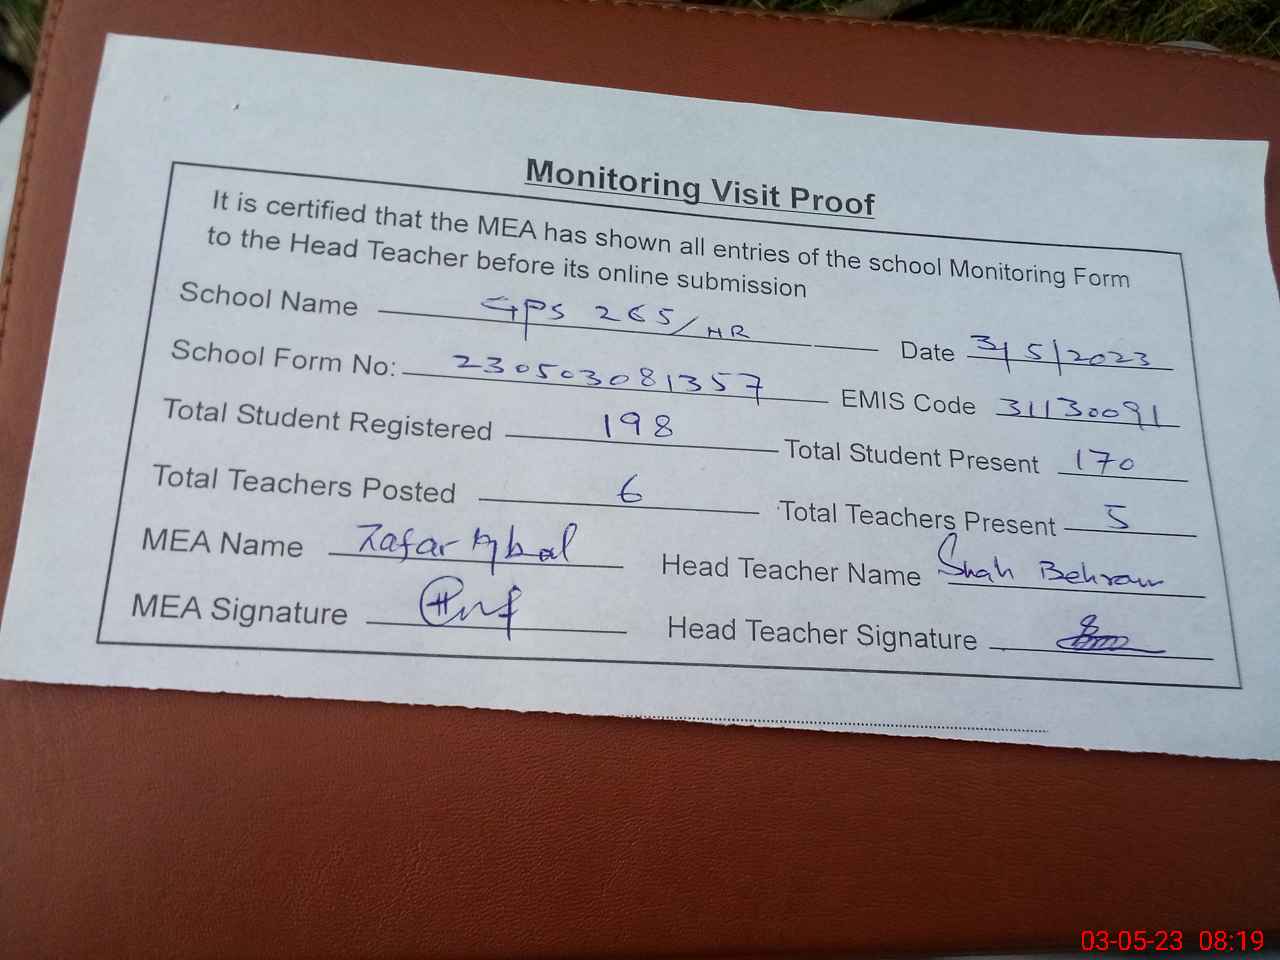 Monitoring Visit Proof
It is certified that the MEA has shown all entries of the school Monitoring Form
to the Head Teacher before its online submission
School Name GPS 265/HR Date 3/5/2023
School Form No: 230503081357 EMIS Code 31130091
Total Student Registered 198 Total Student Present 170
Total Teachers Posted 6 Total Teachers Present 5
MEA Name Zafar Iqbal Head Teacher Name Shah Behram
MEA Signature Head Teacher Signature
03-05-23 08:19